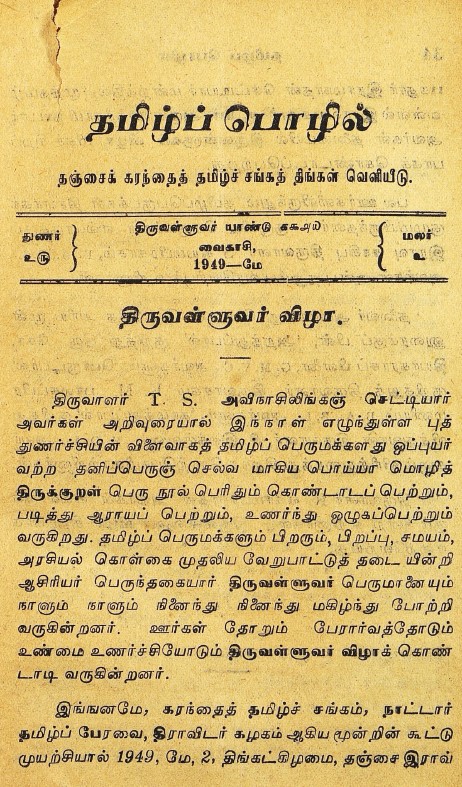 தமிழ்ப் பொழில்
தஞ்சைக் கரந்தைத் தமிழ்ச் சங்கத் திங்கள் வெளியீடு.
துணர்
உரு
திருவள்ளுவர் யாண்டு
வைகாசி,
1949—மே
மலர்
௨
திருவள்ளுவர் விழா.
திருவாளர் T. S. அவிநாசிலிங்கஞ் செட்டியார்
அவர்கள் அறிவுரையால் இந்நாள் எழுந்துள்ள புத்
துணர்ச்சியின் விளைவாகத் தமிழ்ப் பெருமக்களது ஒப்புயர்
வற்ற தனிப்பெருஞ் செல்வ மாகிய பொய்யா மொழித்
திருக்குறள் பெரு நூல் பெரிதும் கொண்டாடப் பெற்றும்,
படித்து ஆராயப் பெற்றும், உணர்ந்து ஒழுகப்பெற்றும்
வருகிறது. தமிழ்ப் பெருமக்களும் பிறரும், பிறப்பு, சமயம்,
அரசியல் கொள்கை முதலிய வேறுபாட்டுத் தடை யின்றி
ஆசிரியர் பெருந்தகையார் திருவள்ளுவர் பெருமானையும்
நாளும் நாளும் நினைந்து நினைந்து மகிழ்ந்து போற்றி
வருகின்றனர். ஊர்கள் தோறும் பேரார்வத்தோடும்
உண்மை உணர்ச்சியோடும் திருவள்ளுவர் விழாக் கொண்
டாடி வருகின்றனர்.
இங்ஙனமே, கரந்தைத் தமிழ்ச் சங்கம், நாட்டார்
தமிழ்ப் பேரவை, திராவிடர் கழகம் ஆகிய மூன்றின் கூட்டு
முயற்சியால் 1949, மே, 2, திங்கட்கிழமை, தஞ்சை இராவ்